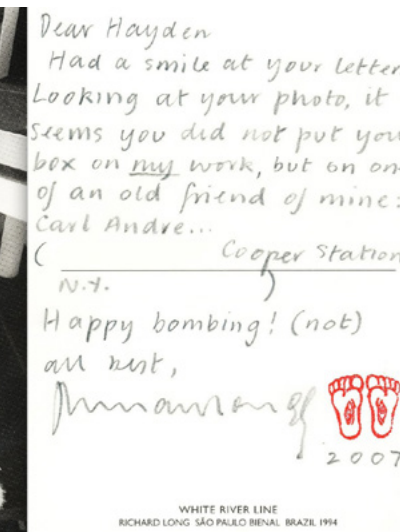 Dear Hayden
Had a smile at your letter
Looking at your photo, it
seems you did not put you
box on my work, but on on
of an old friend of mine:
Carl Andre...
( Cooper Station
N.Y. )
Happy bombing! (not)
all best,
2007
WHITE RIVER LINE
RICHARD LONG SÃO PAULO BIENAL BRAZIL 1994